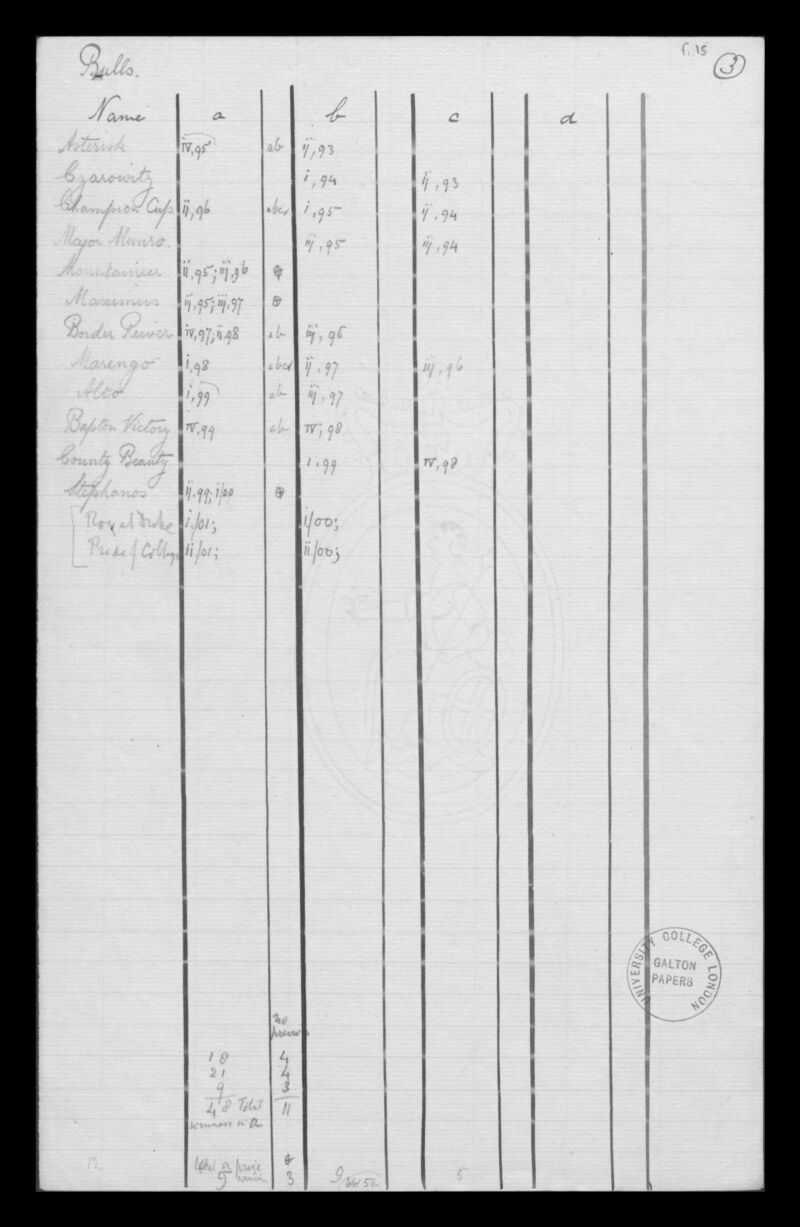 f. 15
3
Bulls.
Name a b c d
Asterisk iv,95 ab ij,93
Czarowitz i,94 ij,93
Champion Cup ij,96 abc i,95 ij,94
Major Munro. iij,95 iij,94
Mountaineer ij,95; iij,96
Maximus iij,95; iij,97
Border Reiver iv,97; ii.98 ab iij,96
Marengo i,98 abc ij,97 iij,96
Alto i,99 ab iij,97
Bapton Victory iv,99 ab iv,98
County Beauty i.99 iv,98
Stephanos ij.99; i/00
Royal Duke i/01; i/00;
Pride of College ii/01; ii/00;
UNIVERSITY COLLEGE LONDON
GALTON
PAPERS
no
18 4
21 4
9 3
48 Total 11
winners in a
12 total a prize
9 3 9 5